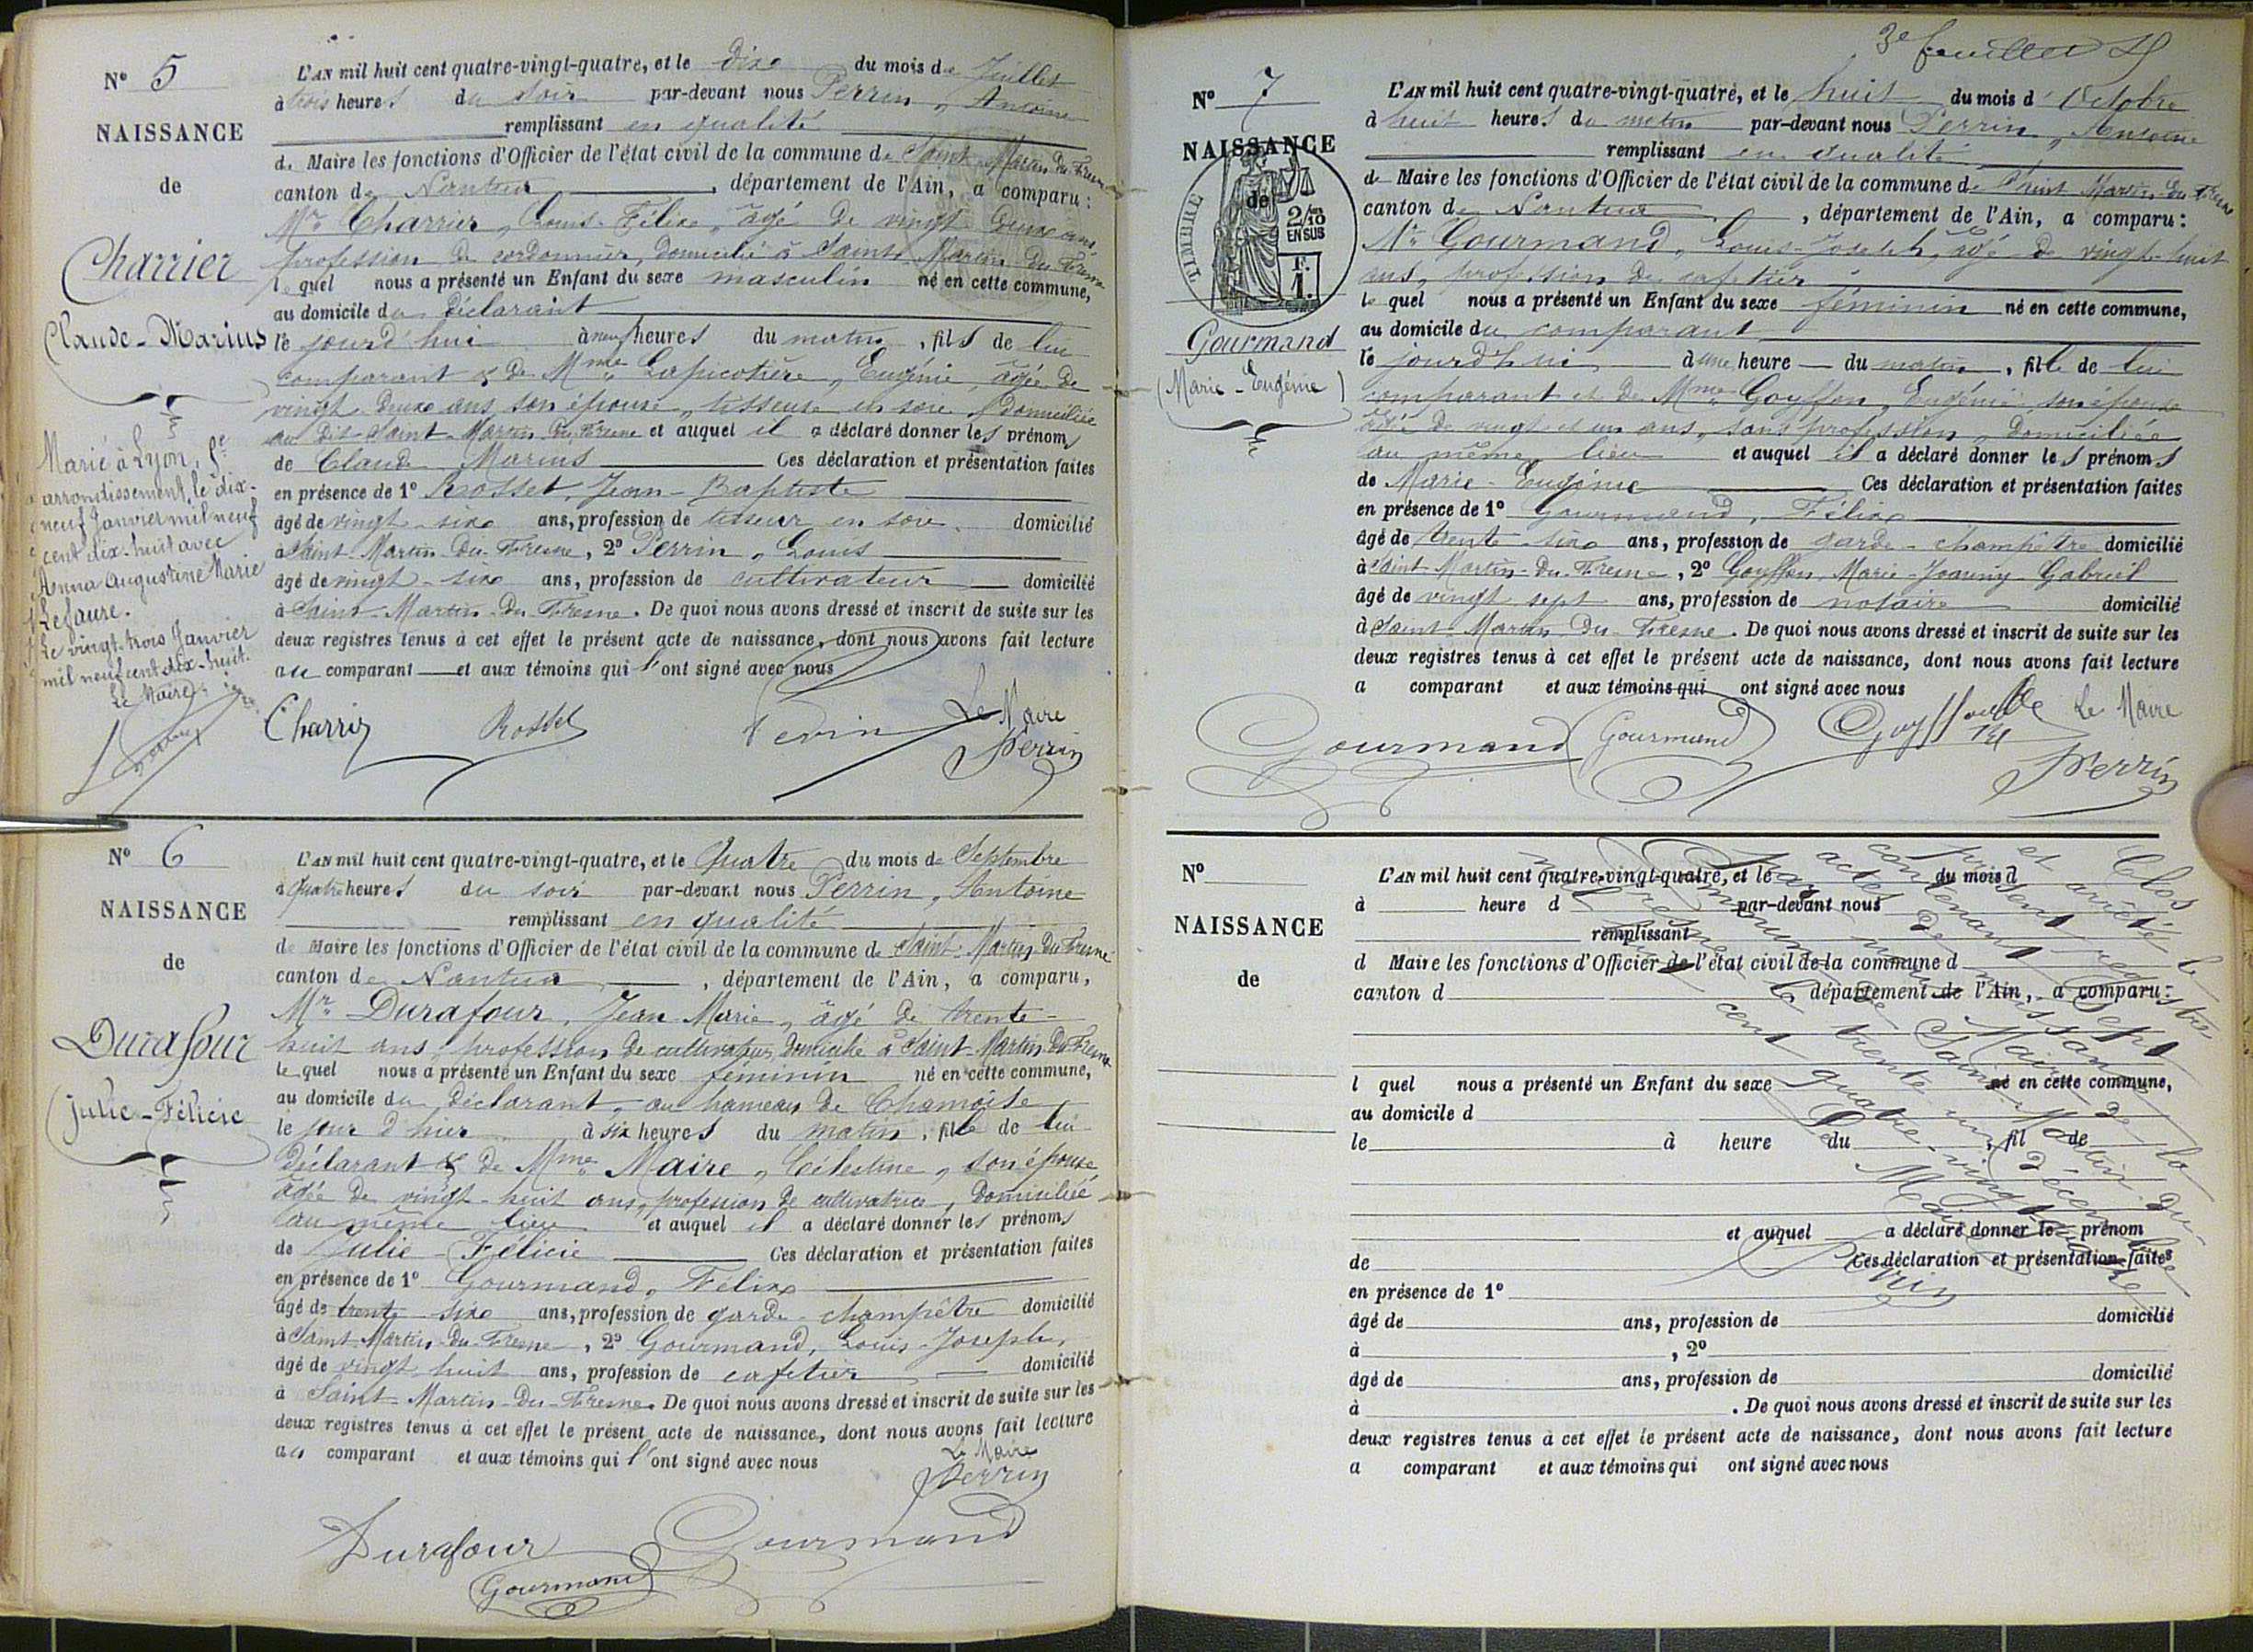 N° 5
NAISSANCE
de
Charrier
Claude-Marius
Marié à Lyon, 5e
arrondissement, le dix-
neuf Janvier mil neuf
cent dix-huit avec
Anna Augustine Marie
Lefaure.
Le vingt-trois Janvier
mil neuf cent dix-huit.
Le Maire
L'AN mil huit cent quatre-vingt-quatre, et le dix du mois de Juillet
à trois heures du soir par-devant nous Perrin, Antoine
remplissant en qualité
de Maire les fonctions d'Officier de l'état civil de la commune de Saint-Martin du Fresne
canton de Nantua, département de l'Ain, a comparu :
Mr Charrier, Louis-Félix, âgé de vingt deux ans,
profession de cordonnier, domicilié à Saint Martin du Fresne
le quel nous a présenté un Enfant du sexe masculin né en cette commune,
au domicile du déclarant
le jourd'hui à neuf heures du matin, fils de lui
comparant & de Mme Lapicotière, Eugénie, âgée de
vingt deux ans, son épouse, tisseuse en soie, domiciliée
au dit Saint-Martin du Fresne et auquel il a déclaré donner les prénoms
de Claude Marius Ces déclaration et présentation faites
en présence de 1° Rosset, Jean-Baptiste
âgé de vingt-six ans, profession de tisseur en soie domicilié
à Saint-Martin-du-Fresne, 2° Perrin, Louis
âgé de vingt-six ans, profession de cultivateur domicilié
à Saint-Martin-du-Fresne. De quoi nous avons dressé et inscrit de suite sur les
deux registres tenus à cet effet le présent acte de naissance, dont nous avons fait lecture
au comparant et aux témoins qui l'ont signé avec nous
Charrier Rosset Perrin Le Maire
Perrin
N° 6
NAISSANCE
de
Durafour
Julie-Félicie
L'AN mil huit cent quatre-vingt-quatre, et le Quatre du mois de Septembre
à quatre heures du soir par-devant nous Perrin, Antoine
remplissant en qualité
de Maire les fonctions d'Officier de l'état civil de la commune de Saint-Martin du Fresne
canton de Nantua, département de l'Ain, a comparu,
Mr Durafour, Jean Marie, âgé de trente-
huit ans, profession de cultivateur, domicilié à Saint-Martin-du-Fresne
le quel nous a présenté un Enfant du sexe féminin né en cette commune,
au domicile du déclarant, au hameau de Chamoise
le jour d'hier à six heures du matin, fille de lui
déclarant & de Mme Maire, Célestine, son épouse,
âgée de vingt-huit ans, profession de cultivatrice, domiciliée
au même lieu et auquel il a déclaré donner les prénoms
de Julie-Félicie Ces déclaration et présentation faites
en présence de 1° Gourmand, Félix
âgé de trente-six ans, profession de garde-champêtre domicilié
à Saint-Martin-du-Fresne, 2° Gourmand, Louis-Joseph,
âgé de vingt huit ans, profession de cafetier domicilié
à Saint-Martin-du-Fresne. De quoi nous avons dressé et inscrit de suite sur les
deux registres tenus à cet effet le présent acte de naissance, dont nous avons fait lecture
au comparant et aux témoins qui l'ont signé avec nous
Le Maire
Perrin
Durafour Gourmand
Gourmand
3e feuillet
N° 7
NAISSANCE
de
TIMBRE
2/10
EN SUS
F.
1.
Gourmand
(Marie-Eugénie)
L'AN mil huit cent quatre-vingt-quatre, et le huit du mois d'Octobre
à huit heures du matin par-devant nous Perrin, Antoine
remplissant en qualité
de Maire les fonctions d'Officier de l'état civil de la commune de Saint Martin du Fresne
canton de Nantua, département de l'Ain, a comparu :
Mr Gourmand, Louis-Joseph, âgé de vingt-huit
ans, profession de cafetier
le quel nous a présenté un Enfant du sexe féminin né en cette commune,
au domicile du comparant
le jourd'hui à une heure du matin, fille de lui
comparant et de Mme Goyffon, Eugénie, son épouse
âgée de vingt et un ans, sans profession, domiciliée
au même lieu et auquel il a déclaré donner les prénoms
de Marie-Eugénie Ces déclaration et présentation faites
en présence de 1° Gourmand, Félix
âgé de trente-six ans, profession de garde-champêtre domicilié
à Saint-Martin-du-Fresne, 2° Goyffon, Marie-Joanny-Gabriel
âgé de vingt sept ans, profession de notaire domicilié
à Saint-Martin-du-Fresne. De quoi nous avons dressé et inscrit de suite sur les
deux registres tenus à cet effet le présent acte de naissance, dont nous avons fait lecture
a comparant et aux témoins qui ont signé avec nous
Gourmand Gourmand Goyffon Le Maire
Perrin
N°
NAISSANCE
de
L'AN mil huit cent quatre-vingt-quatre, et le du mois d
à heure d par-devant nous
remplissant
d Maire les fonctions d'Officier de l'état civil de la commune d
canton d département de l'Ain, a comparu :
l quel nous a présenté un Enfant du sexe né en cette commune,
au domicile d
le à heure du , fil de
et auquel a déclaré donner le prénom
de Ces déclaration et présentation faites
en présence de 1°
âgé de ans, profession de domicilié
à , 2°
âgé de ans, profession de domicilié
à . De quoi nous avons dressé et inscrit de suite sur les
deux registres tenus à cet effet le présent acte de naissance, dont nous avons fait lecture
a comparant et aux témoins qui ont signé avec nous
Clos
et arrêté le
présent registre
contenant sept
actes de naissance
par nous Maire de la
commune de Saint-Martin-du-
Fresne le trente un Décembre
mil huit cent quatre-vingt-quatre
Le Maire
Perrin